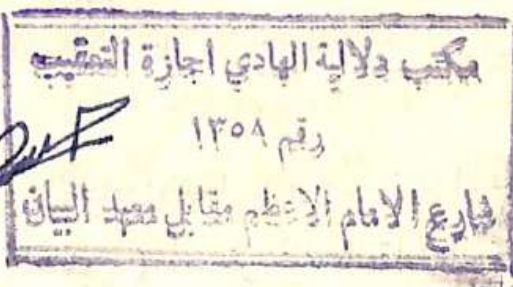 مكتب دلالية الهادي اجازة التعقيب
رقم ١٣٥٨
شارع الامام الاعظم مقابل معهد البيان